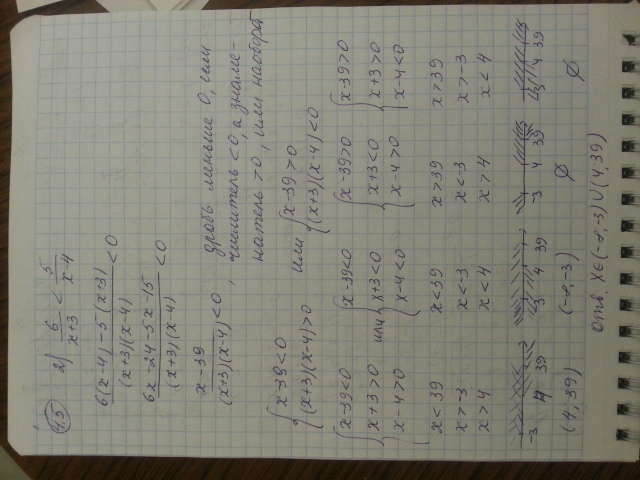 4.5 2) 6/(x+3) < 5/(x-4)
(6(x-4)-5(x+3))/((x+3)(x-4)) < 0
(6x-24-5x-15)/((x+3)(x-4)) < 0
(x-39)/((x+3)(x-4)) < 0, дробь меньше 0, если
числитель <0, а знаме-
натель >0, или наоборот
{x-39<0 (x+3)(x-4)>0 или {x-39>0 (x+3)(x-4)<0
{x-39<0 или {x-39<0 {x-39>0 {x-39>0
x+3>0 x+3<0 x+3<0 x+3>0
x-4>0 x-4<0 x-4>0 x-4<0
x<39 x<39 x>39 x>39
x>-3 x<-3 x<-3 x>-3
x>4 x<4 x>4 x<4
-3 4 39 -3 4 39 -3 4 39 -3 4 39
(4,39) (-∞,-3) ∅ ∅
Отв. x∈(-∞,-3)∪(4,39)